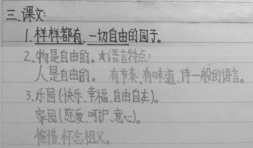 三.课文:
1.样样都有,一切自由的园子。
2.物是自由的。★语言特点:
人是自由的。有节奏、有味道、诗一般的语言。
3.乐园(快乐、幸福、自由自在)。
家园(慈爱、呵护、童心)。
惋惜、怀念祖父。